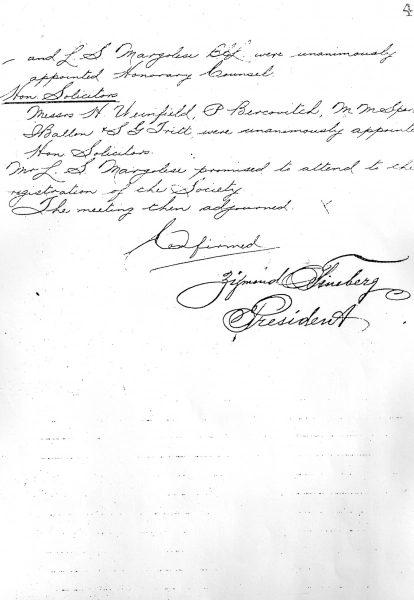 4
- and L S Margolese Esq were unanimously
appointed Honorary Counsel.
Hon Solicitors
Messrs H Weinfield, P Bercovitch, M M Sper
I Ballon & S G Tritt, were unanimously appointe
Hon Solicitors.
Mr L. S Margolese promised to attend to the
registration of the Society
The meeting then adjourned.
Confirmed
Zigmond Fineberg
President